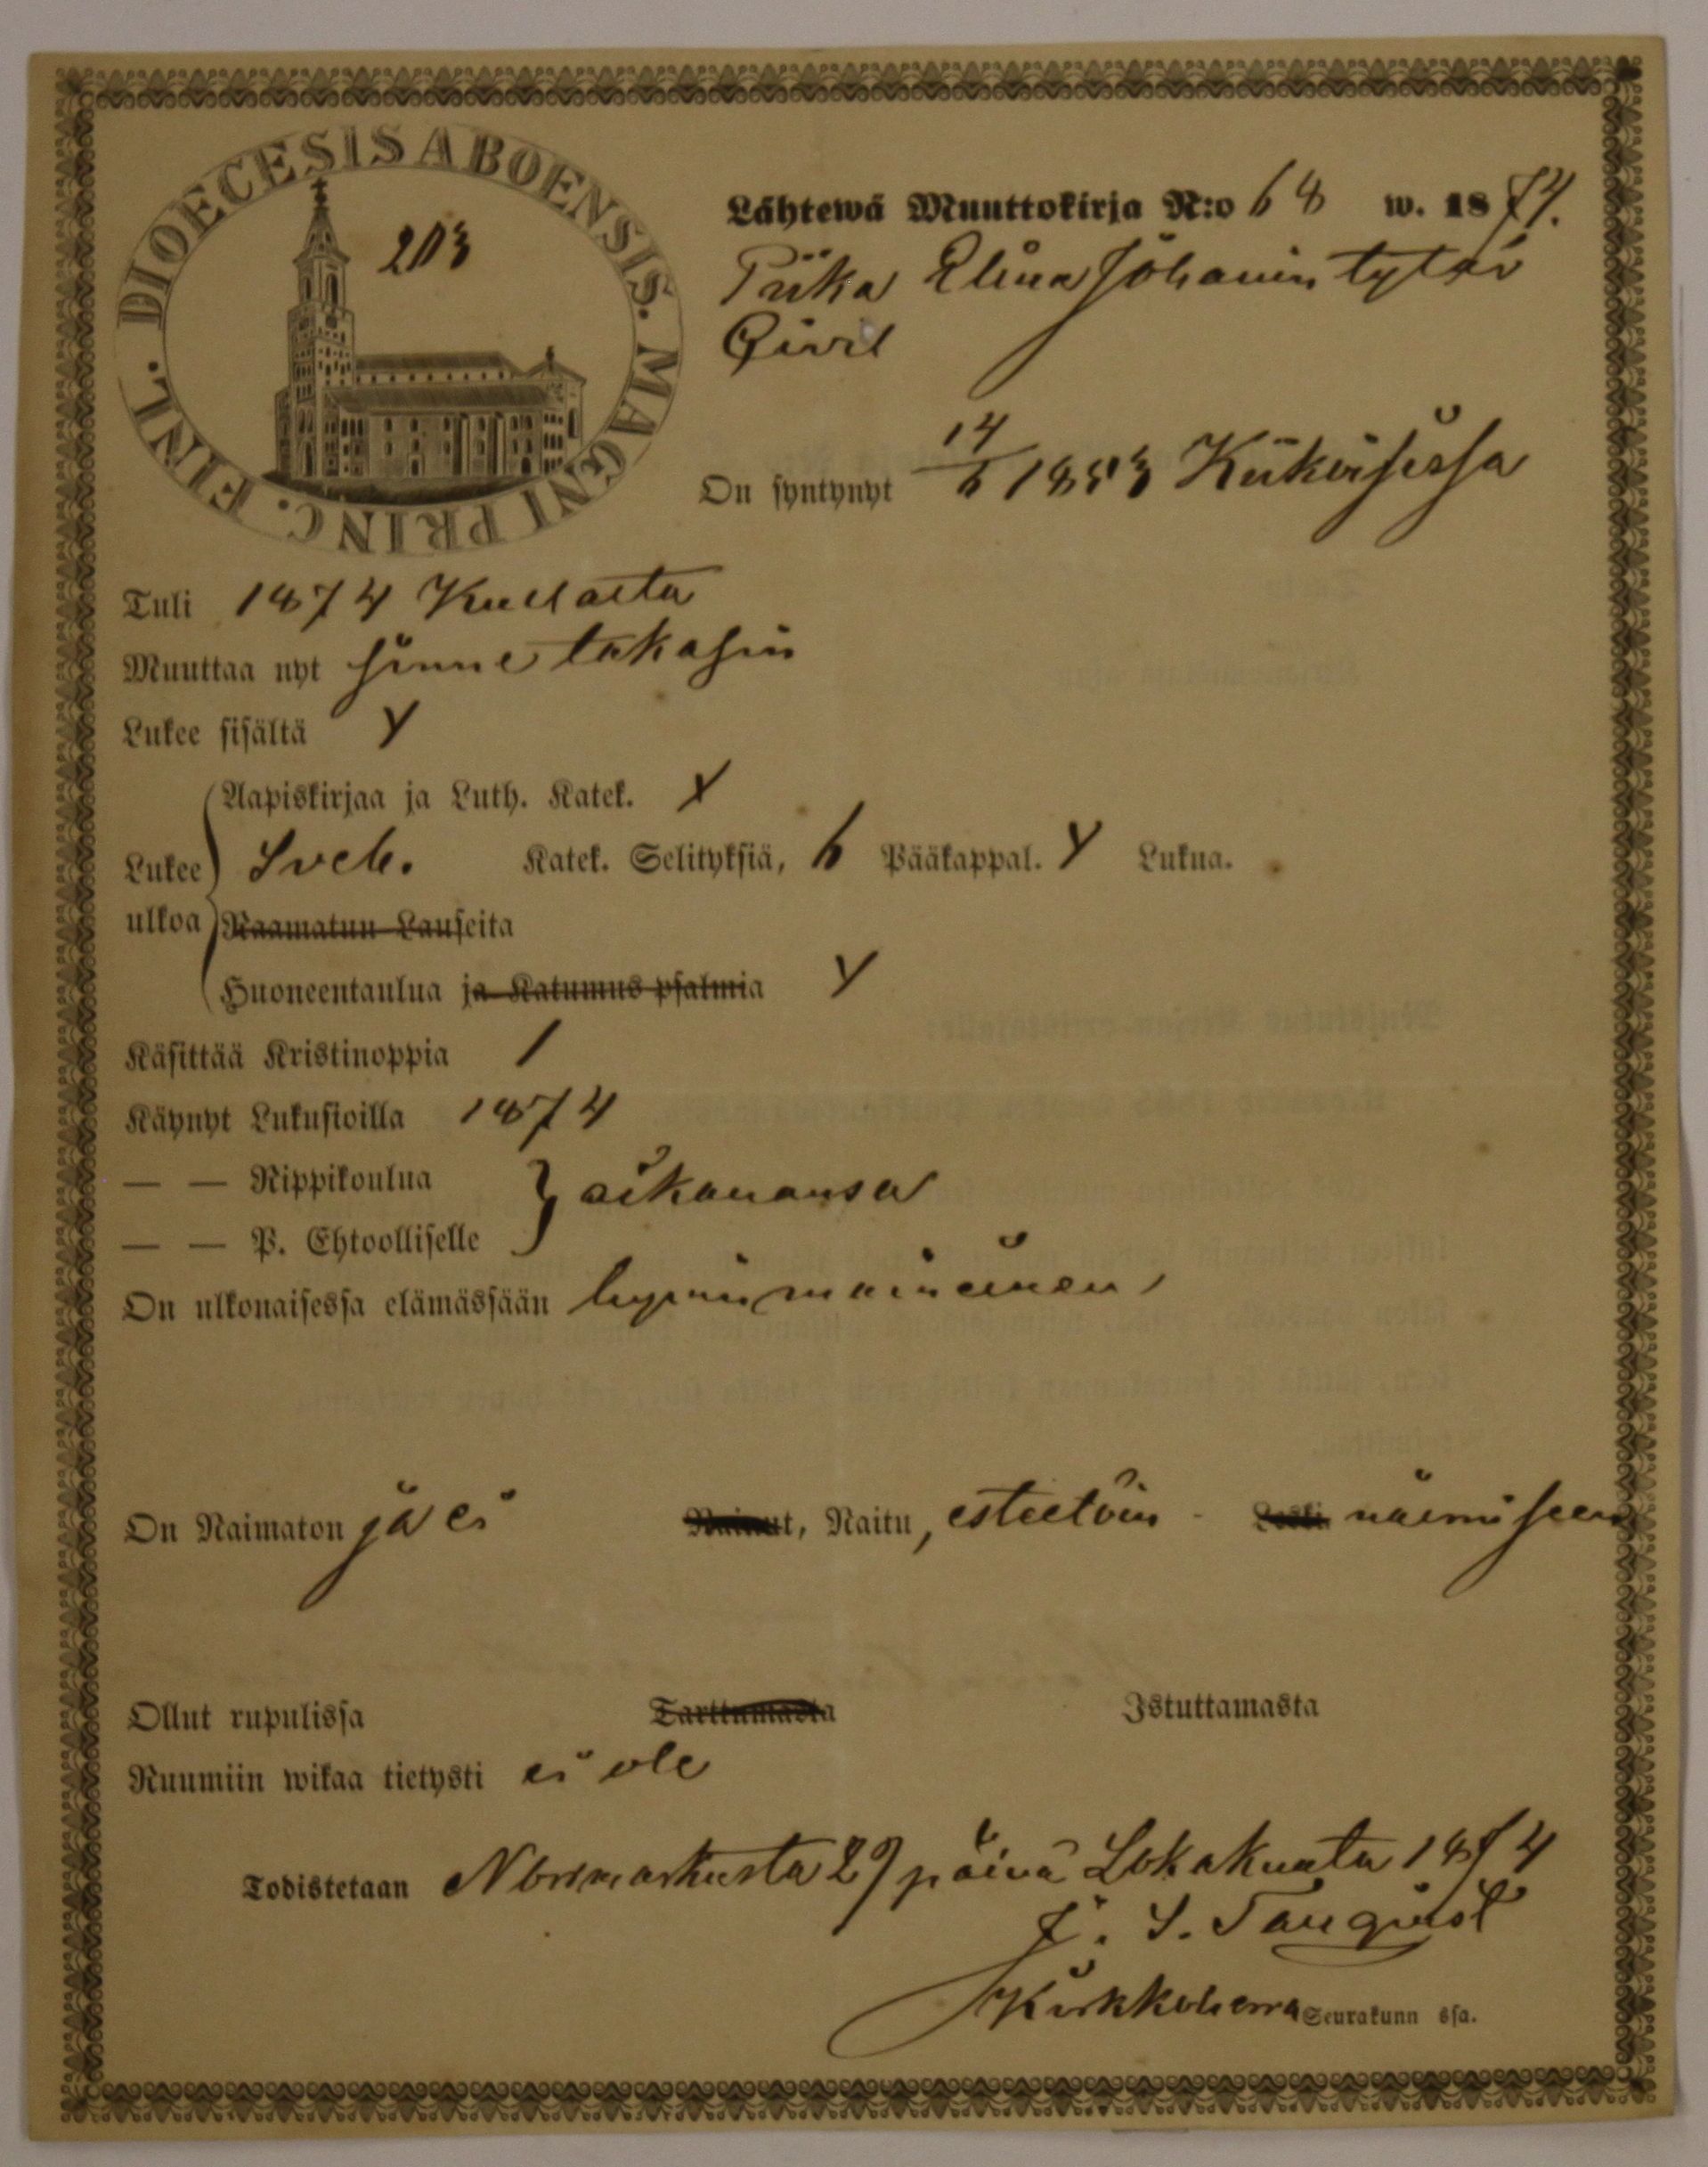 DIOECESIS ABOENSIS. MAGNI PRINC. FINL.
203
Lähtewä Muuttokirja N:o 68 w. 1874.
Piika Elina Johanin tytär
Qvist
On syntynyt 14/6 1853 Kiikoisissa
Tuli 1874 Kullaalta
Muuttaa nyt sinne takasin
Lukee sisältä Y
Aapiskirjaa ja Luth. Katek. X
Lukee ulkoa Sveb. Katek. Selityksiä, 6 Pääkappal. Y Lukua.
Raamatun Lauseita
Huoneentaulua ja Katumus psalmia Y
Käsittää Kristinoppia /
Käynyt Lukusioilla 1874
— — Rippikoulua } aikanansa
— — P. Ehtoolliselle
On ulkonaisessa elämässään hyvinmaineinen,
On Naimaton ja ei Nainut, Naitu, esteetöin Leski naimiseen
Ollut rupulissa Tarttumasta Istuttamasta
Ruumiin wikaa tietysti ei ole
Todistetaan Norrmarkusta 29 päivä Lokakuuta 1874
J. S. Tanqvist
Kirkkoherra Seurakunn ssa.